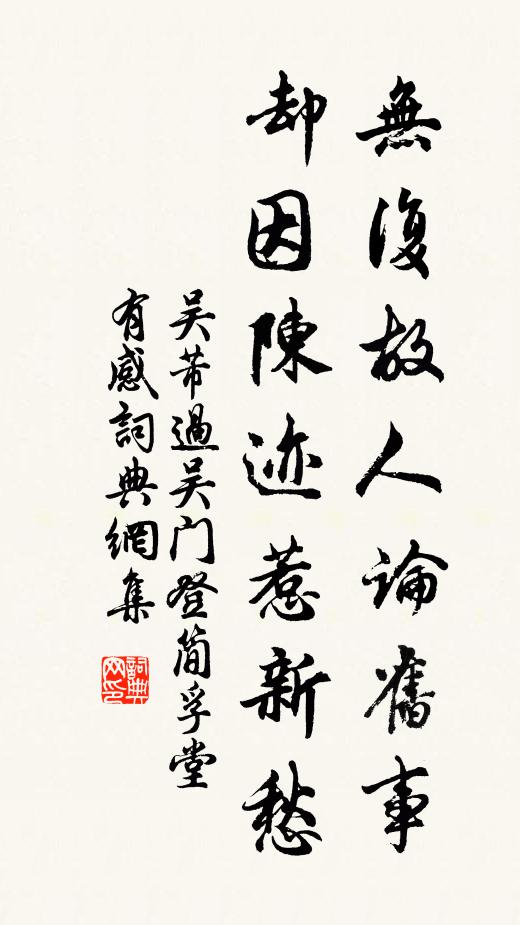 無復故人論舊事
却因陳迹惹新愁
吴芾過吴门登简孚堂
有感詞典網集
詞典网印